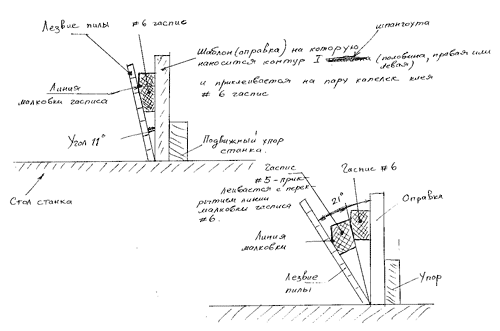 Лезвие пилы
#6 гаспис
шпангоута
Шаблон (оправка) на которую
наносится контур I (половина, правая или
левая),
и приклеивается на пару капелек клея
#6 гаспис
Линия
малковки гасписа
Угол 11°
Подвижный упор
станка.
Стол станка
Гаспис
#5 - прик-
леивается с перек-
рытием линии
малковки гасписа
#6.
21°
Гаспис #6
Оправка
Линия
малковки
Лезвие
пилы
Упор